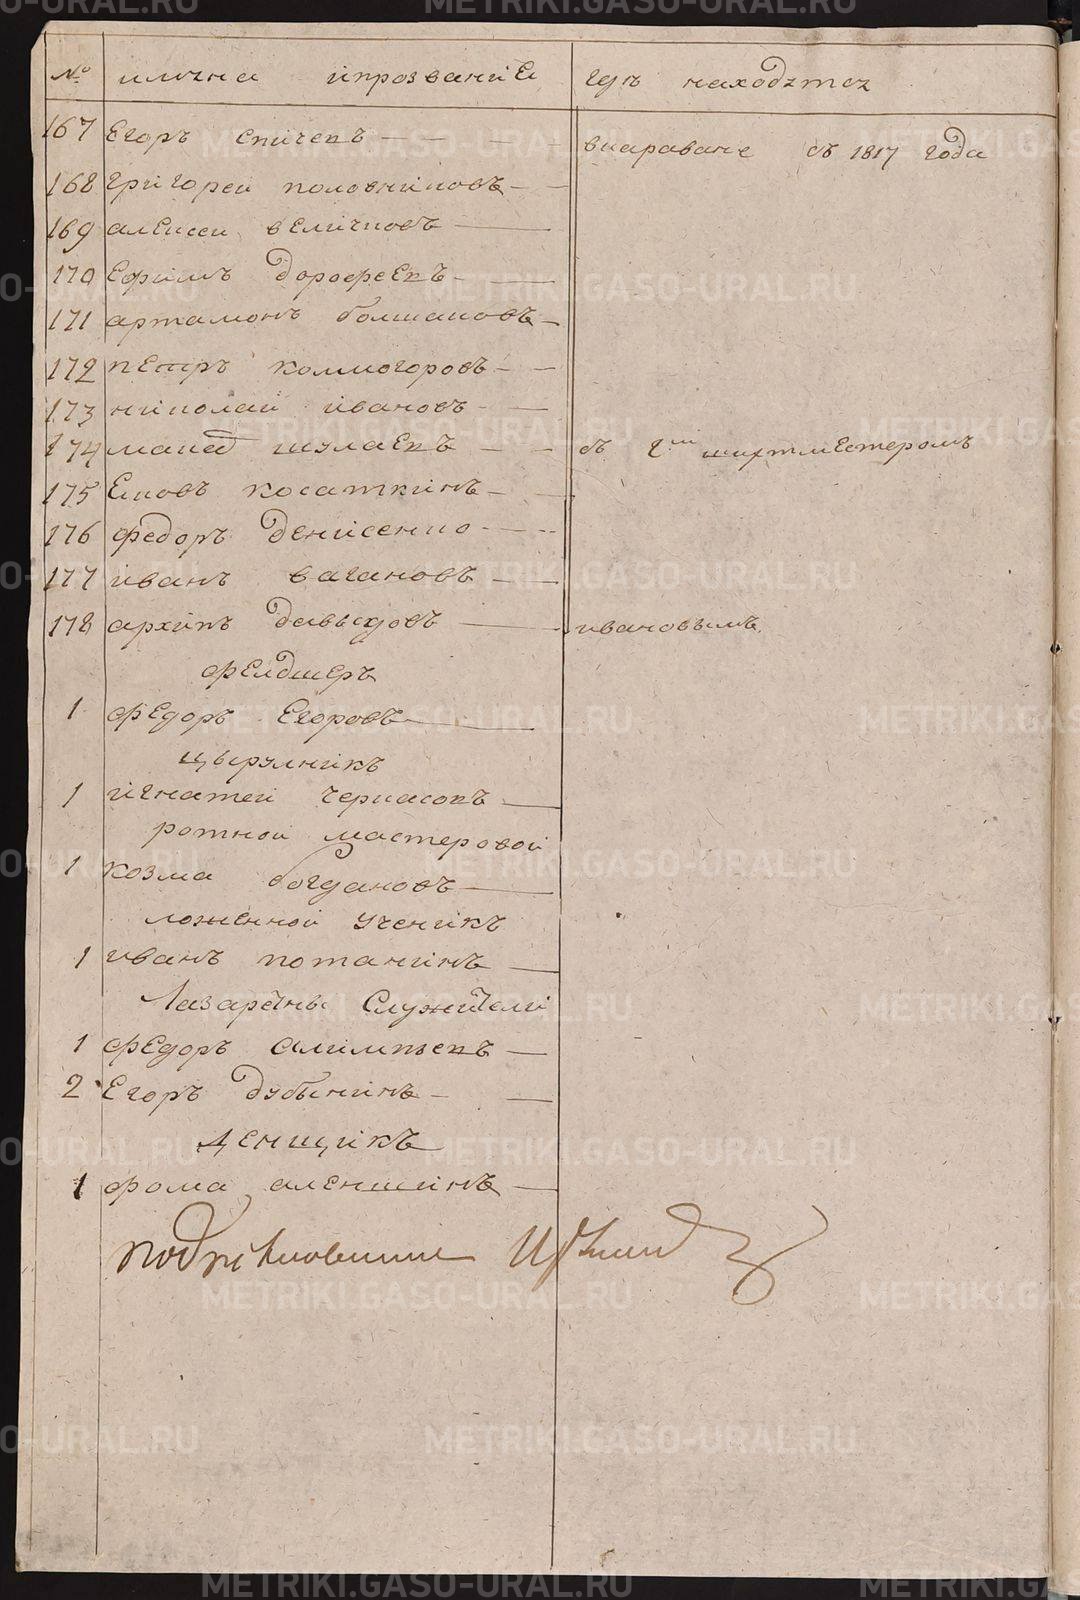 № имена ипрозваниЕ где находятся
167 Егоръ спичекъ вкараване съ 1817 года
168 григорей половниковъ
169 алексеи величковъ
170 Ефимъ дорофеекъ
171 артамонъ болшаковъ
172 пЕтръ колмогоровъ
173 николай ивановъ
174 шулаекъ съ Гмъ шихтмЕстеромъ
175 косаткинъ
176 федоръ денисенко
177 иванъ вагановъ
178 архипъ давыдовъ ивановымъ
фелдшеръ
1 фЕдоръ Егоровъ
цырулникъ
1 игнатей черкасокъ
ротной мастеровой
1 козма богдановъ
ложенной ученикъ
1 иванъ потанинъ
Лазаретны Служители
1 фЕдоръ
2 Егоръ дубынинъ
денщикъ
1 фома аленшинъ
METRIKI.GASO-URAL.RU